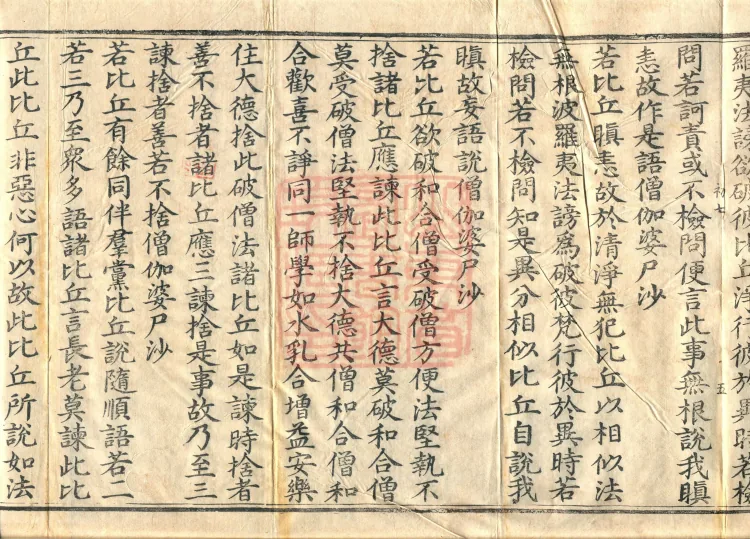 羅夷法謗欲破彼比丘淨行彼於異時若檢
五
問若訶責或不檢問便言此事無根說我瞋
恚故作是語僧伽婆尸沙
若比丘瞋恚故於清淨無犯比丘以相似法
無根波羅夷法謗為破彼梵行彼於異時若
檢問若不檢問知是異分相似比丘自說我
瞋故妄語說僧伽婆尸沙
若比丘欲破和合僧受破僧方便法堅執不
捨諸比丘應諫此比丘言大德莫破和合僧
莫受破僧法堅執不捨大德共僧和合僧和
合歡喜不諍同一師學如水乳合增益安樂
住大德捨此破僧法諸比丘如是諫時捨者
善不捨者諸比丘應三諫捨是事故乃至三
諫捨者善若不捨僧伽婆尸沙
若比丘有餘同伴羣黨比丘說隨順語若二
若三乃至眾多語諸比丘言長老莫諫此比
丘此比丘非惡心何以故此比丘所說如法